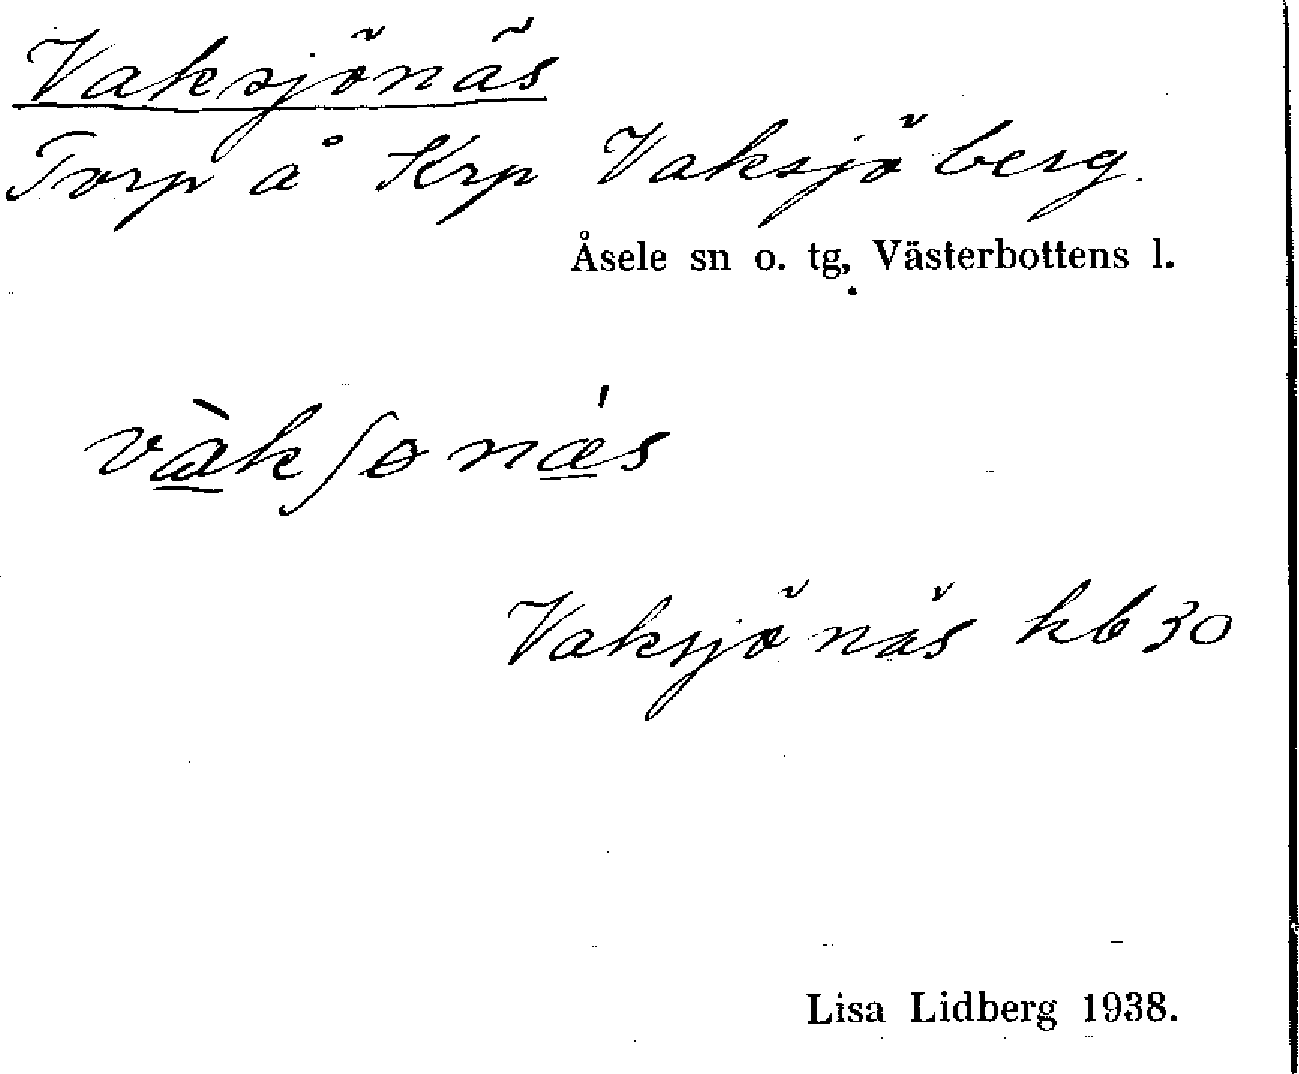 Vaksjönäs
Torp å Krp Vaksjöberg.
Åsele sn o. tg, Västerbottens l.
và̱kʃɵnǽ̱s
Vaksjönäs hb 30
Lisa Lidberg 1938.